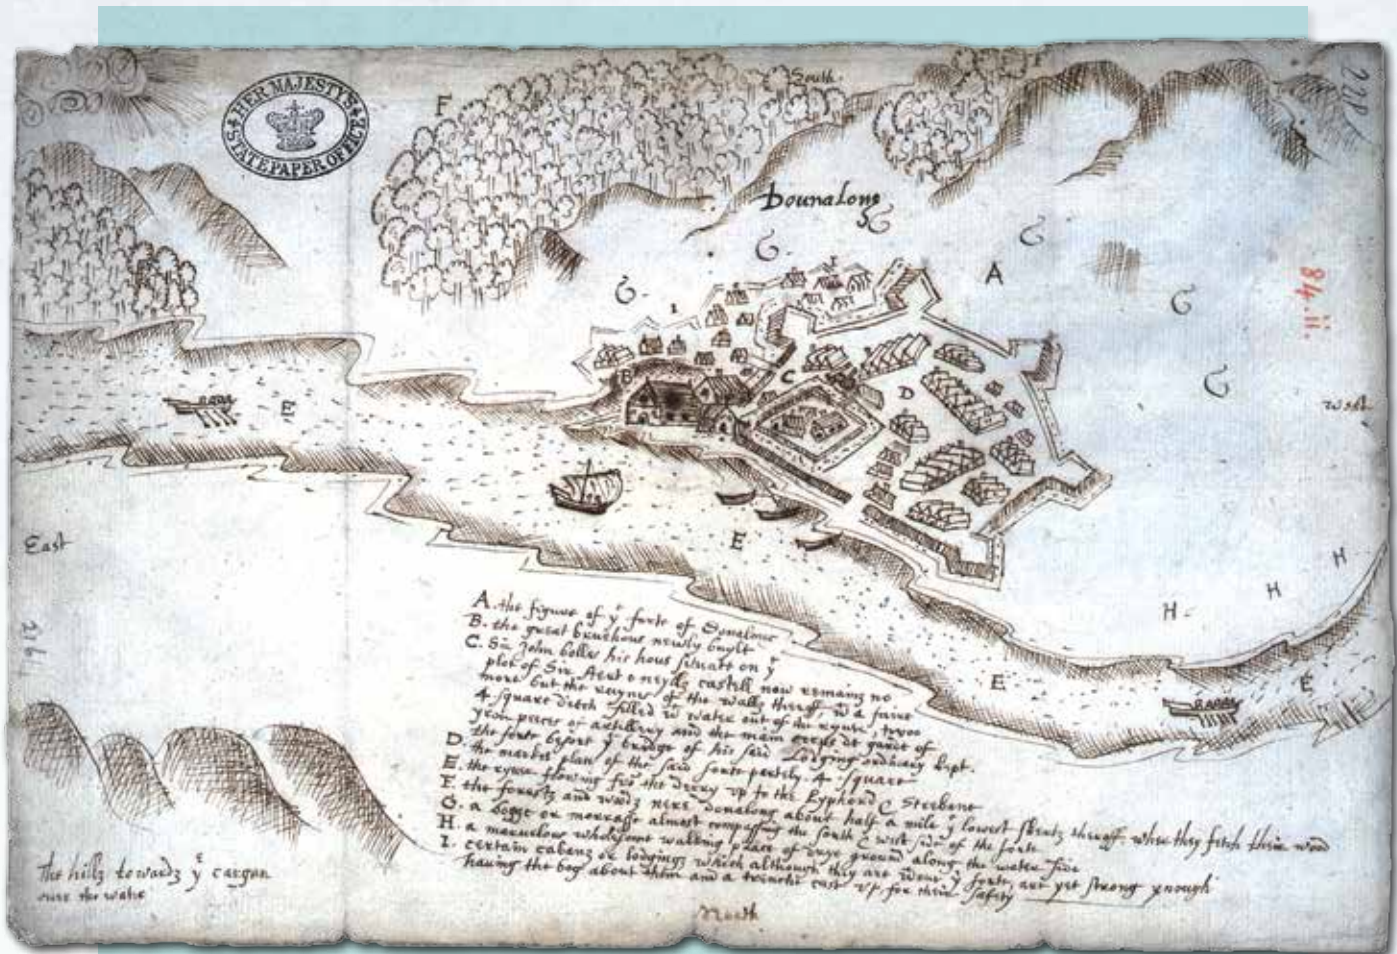 HER MAJESTY'S
STATE PAPER OFFICE
South
F
Dounalong
G
G
G
G
G
G
A
I
I
B
C
D
E
E
E
E
H
H
H
West
East
84. ii.
A. the figure of yͤ forte of Donalonc
B. the great bruehous newly buylt
C. Sʳ John bolles his hous situatt on yͤ
plot of Sir Aert o neylls castell now remains no
more but the ruyns of the walls theroff, wᵗ a faire
4 square ditch filled wᵗ water out of the ryuer, twoo
yron peeces of artillery and the main corps de garde of
the forte before yͤ bridge of his said Lodging ordinary kept.
D. the market place of the said forte perfectly 4 square
E. the ryuer flowing from the derry vp to the Lyphord & Sterbane
F. the forests and wods nere donalong about half a mile yͤ lowest skirts theroff, wher they fetch their wood
G. a bogge or morrasse almost compassing the south & west side of the forte
H. a maruelous wholsome walking place of drye ground along the water side
I. certain cabans or lodgings which although they are wᵗout yͤ forte, are yet strong ynough
hauing the bog about them and a trench cast vp for their safety
the hills towards yͤ cargan
ouer the water
North